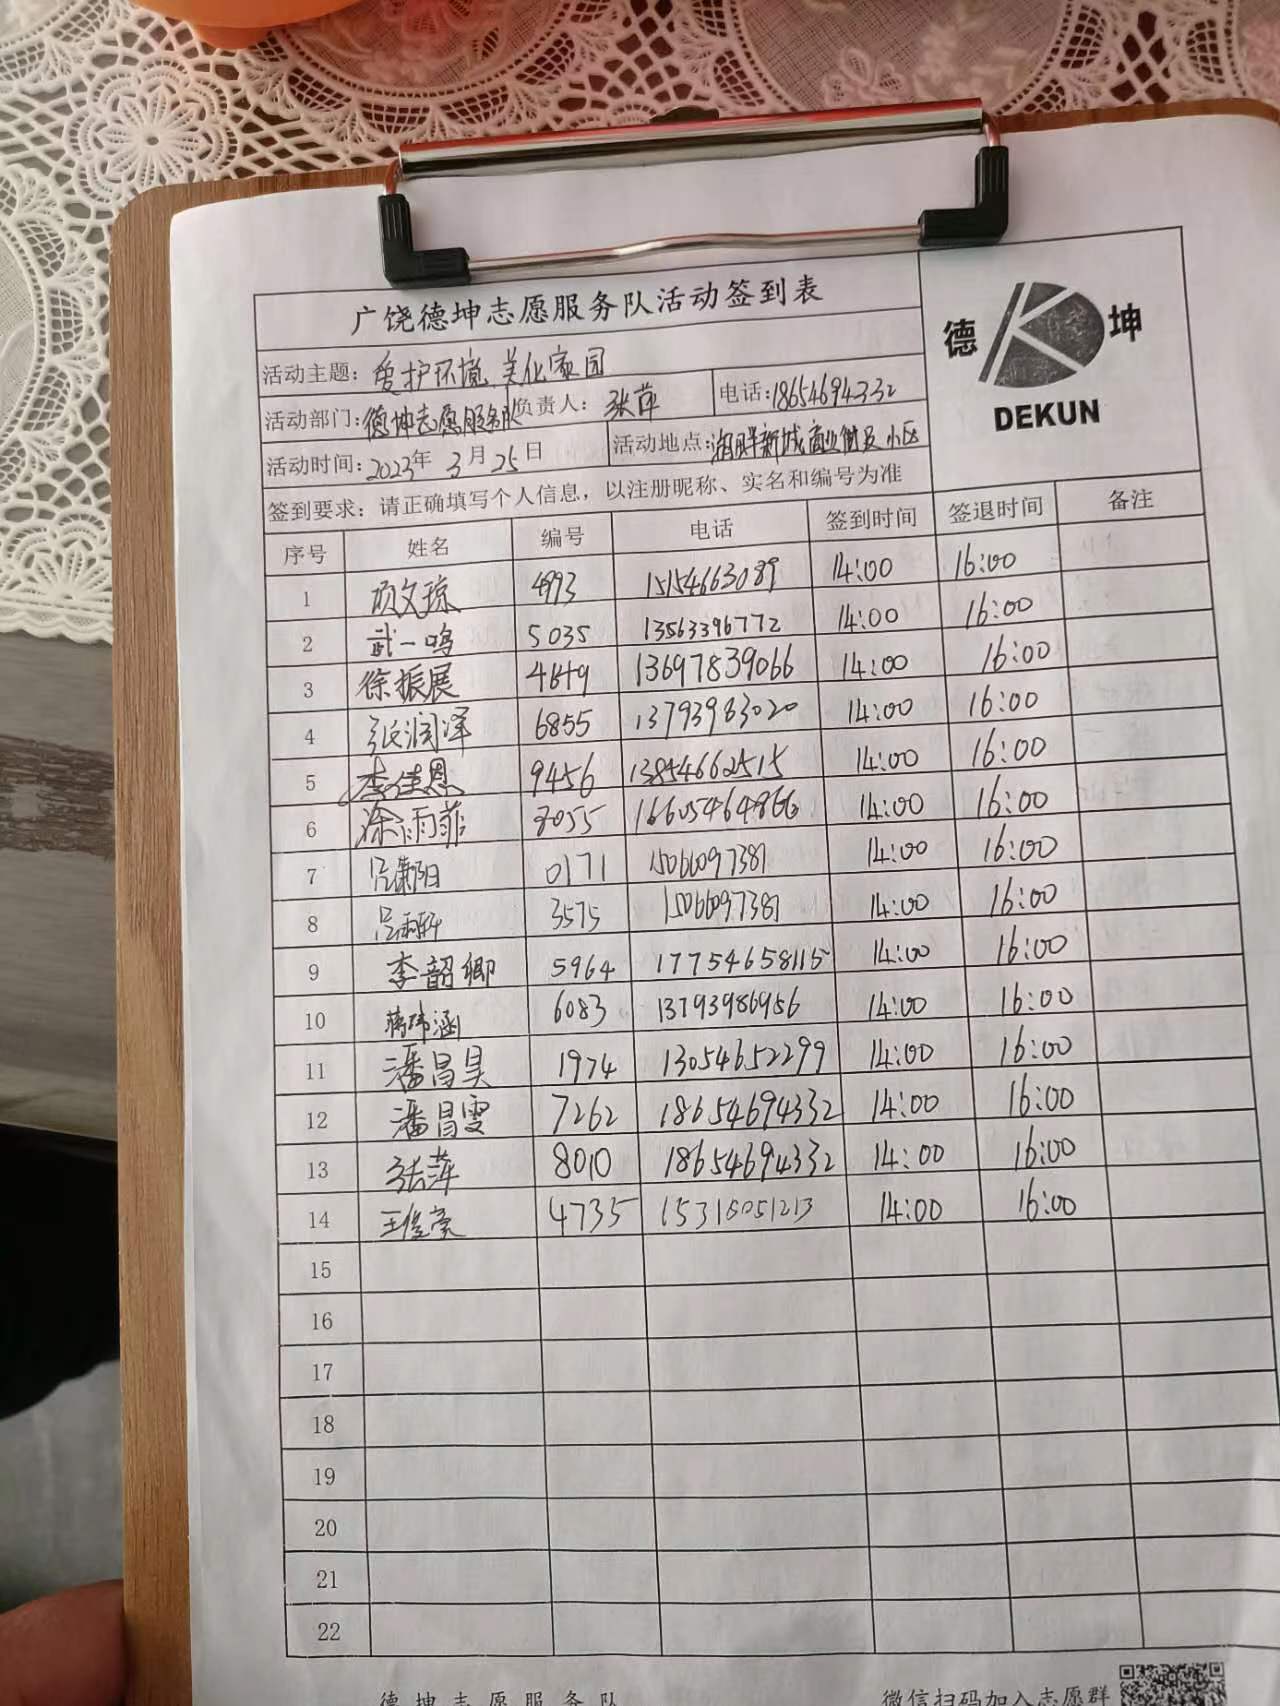 广饶德坤志愿服务队活动签到表
德 坤
DEKUN
活动主题：爱护环境、美化家园
活动部门：德坤志愿服务队 负责人：张萍 电话：18654694332
活动时间：2023年 3月25日 活动地点：新城商业街及小区
签到要求：请正确填写个人信息，以注册昵称、实名和编号为准
序号 姓名 编号 电话 签到时间 签退时间 备注
1 文琼 4993 15154663089 14:00 16:00
2 武一鸣 5035 13563396772 14:00 16:00
3 徐振展 13697839066 14:00 16:00
4 张润泽 6855 13793983020 14:00 16:00
5 李佳恩 9456 13854662515 14:00 16:00
6 徐雨菲 8055 16605464866 14:00 16:00
7 0171 15066097381 14:00 16:00
8 3575 15066097381 14:00 16:00
9 李韶卿 5964 17754658115 14:00 16:00
10 蒋玮涵 6083 13793986956 14:00 16:00
11 潘昌昊 1974 13054652299 14:00 16:00
12 潘昌雯 7262 18654694332 14:00 16:00
13 张萍 8010 18654694332 14:00 16:00
14 4735 15316051213 14:00 16:00
15
16
17
18
19
20
21
22
德坤志愿服务队 微信扫码加入志愿群